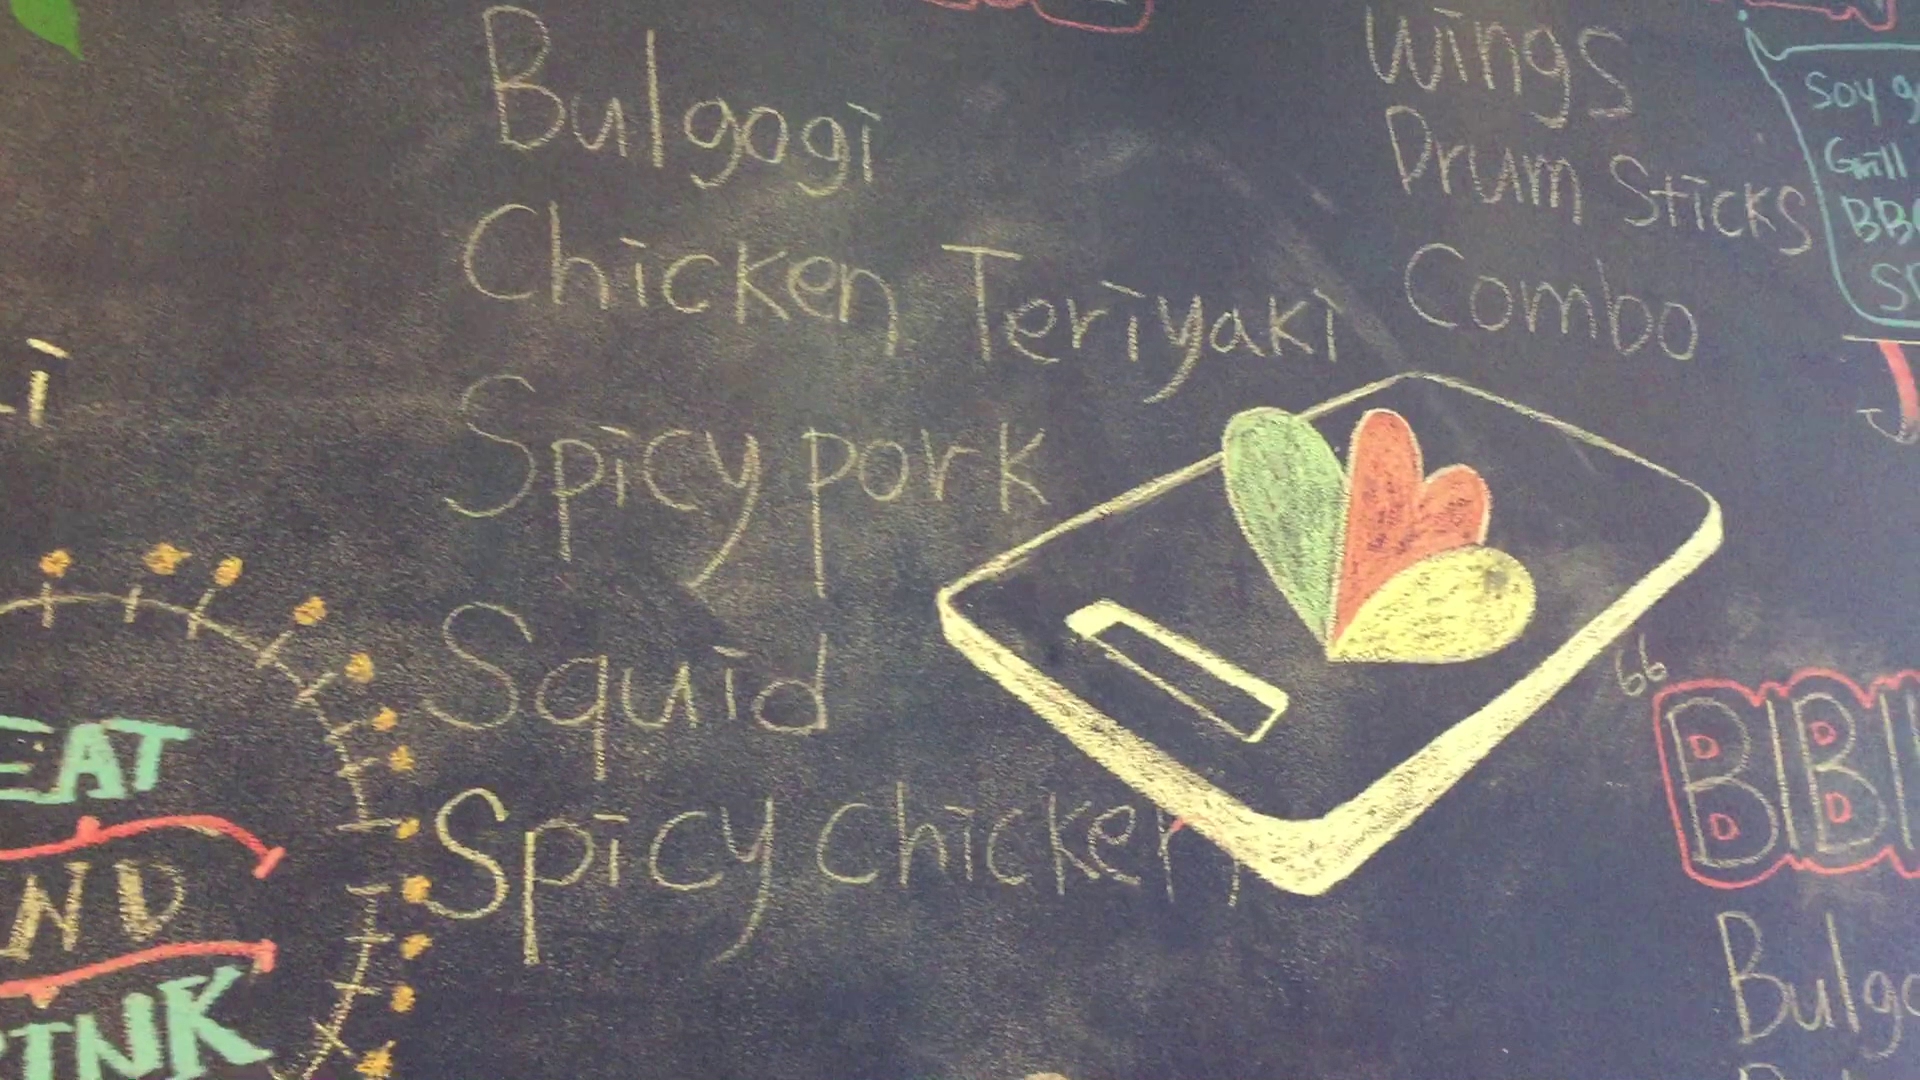 Bulgogi
Chicken Teriyaki
Spicy pork
Squid
Spicy chicken
Wings
Drum Sticks
Combo
Soy
Grill
EAT
ND
INK
66